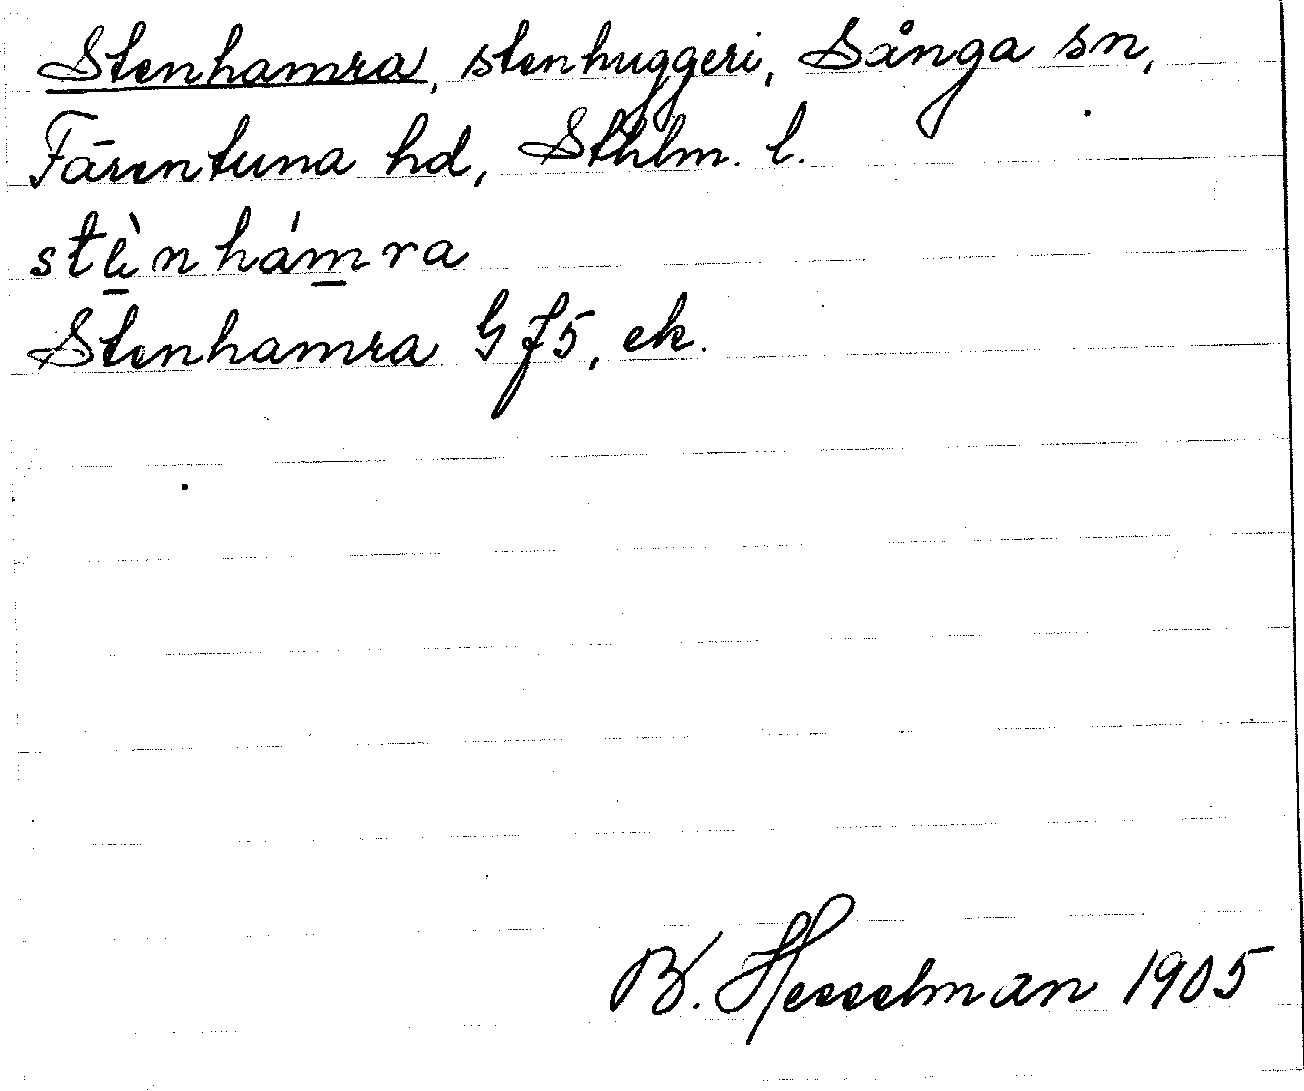 Stenhamra, stenhuggeri, Sånga sn,
Färentuna hd, Sthlm. l.
stè̱nhám̱ra
Stenhamra GJ5, ek.
B. Hesselman 1905